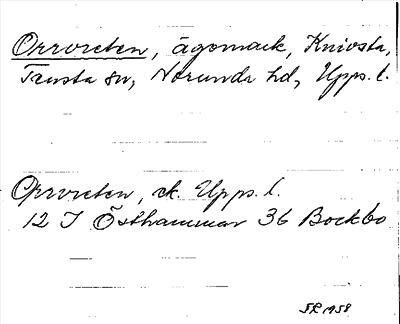 Orrveten, ägomark, Knivsta,
Tensta sn, Norunda hd, Upps. l.
Orrveten, ek. Upps. l.
12 I Östhammar 36 Bockbo
SR 1958